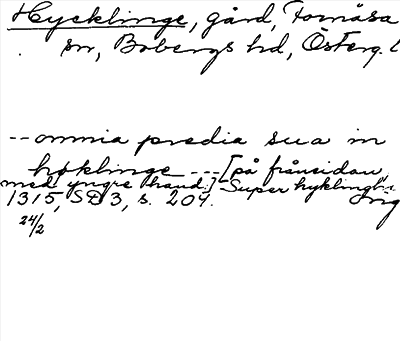 Hycklinge, gård, Fornåsa
sn, Bobergs hd, Österg. l
-- omnia predia sua in
hyklinge --- [på frånsidan,
med yngre hand:] Super hyklingh
1315, SD 3, s. 204. Orig
24/2